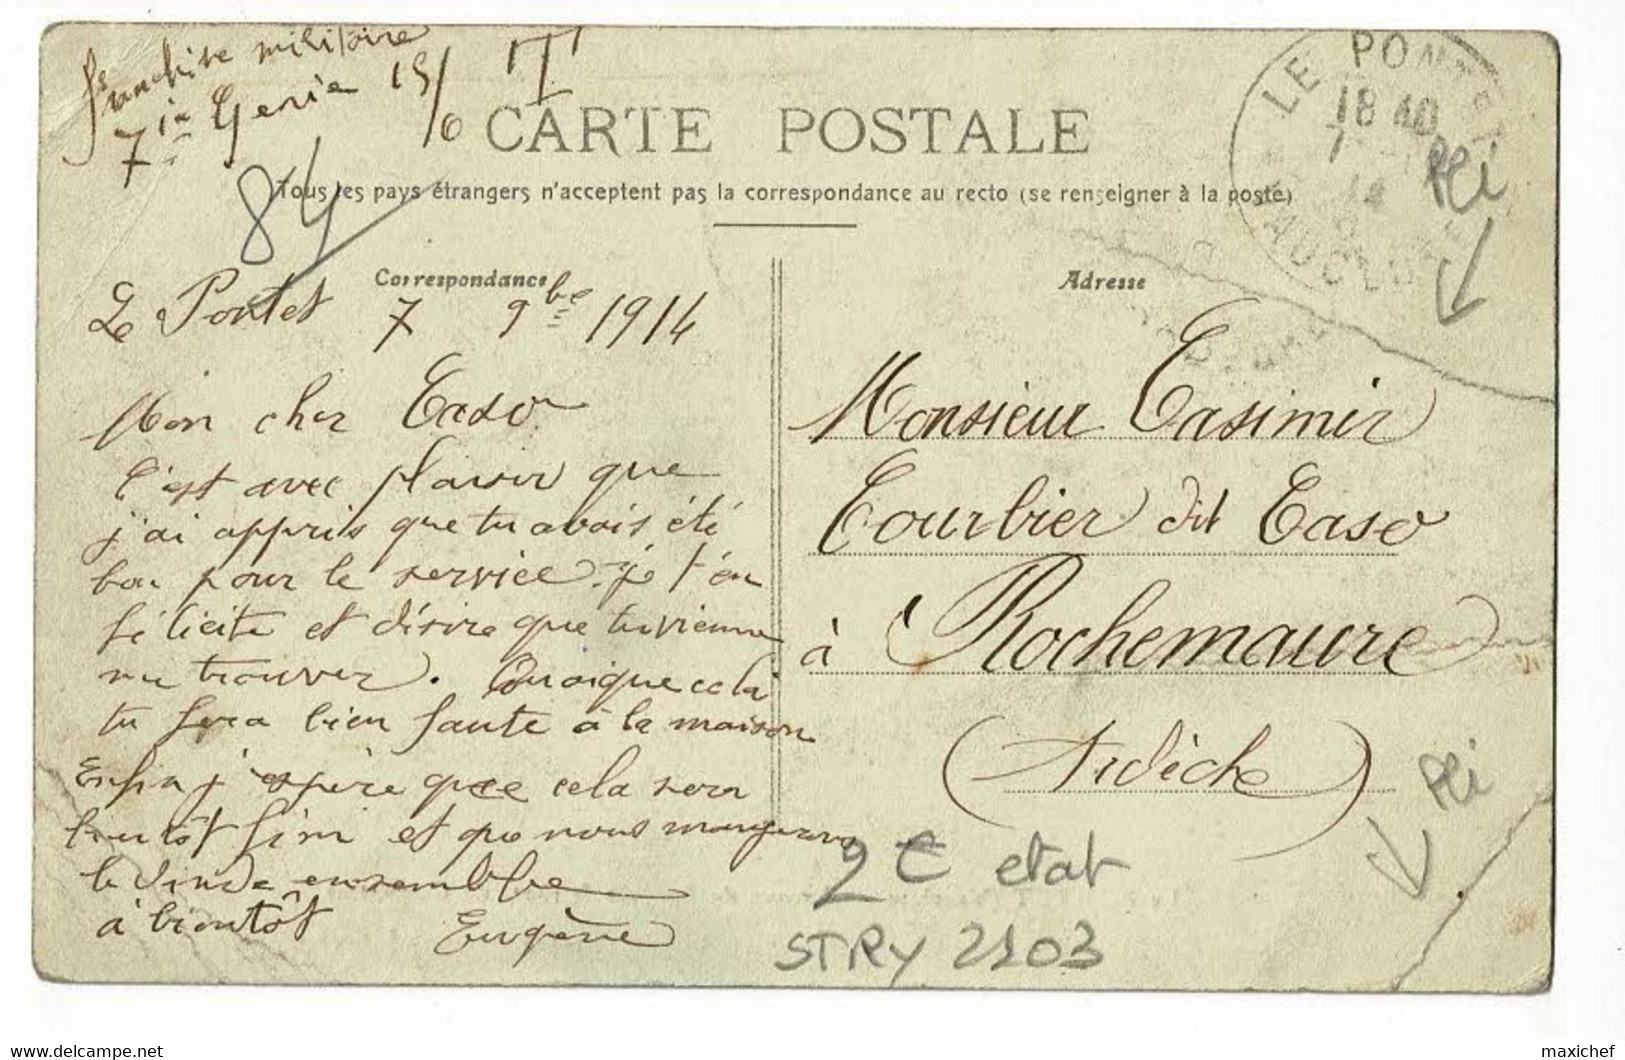 Franchise militaire
7ie Genie 15/6
CARTE POSTALE
84
Tous les pays étrangers n'acceptent pas la correspondance au recto (se renseigner à la poste)
LE PONTET
18 40
7
14
VAUCLUSE
Pli
Correspondance
Le Pontet 7 9bre 1914
Mon cher Caso
C'est avec plaisir que
j'ai appris que tu avais été
bon pour le service. je t'en
félicite et désire que tu vienne
me trouver. Quoique cela
tu fera bien faute à la maison
Enfin j'espère que cela sera
bientôt fini et que nous mangerons
la dinde ensemble
à bientôt Eugène
Adresse
Monsieur Casimir
Courbier dit Caso
à Rochemaure
(Ardèche)
Pli
2e etat
STRY 2203
delcampe.net
maxichef